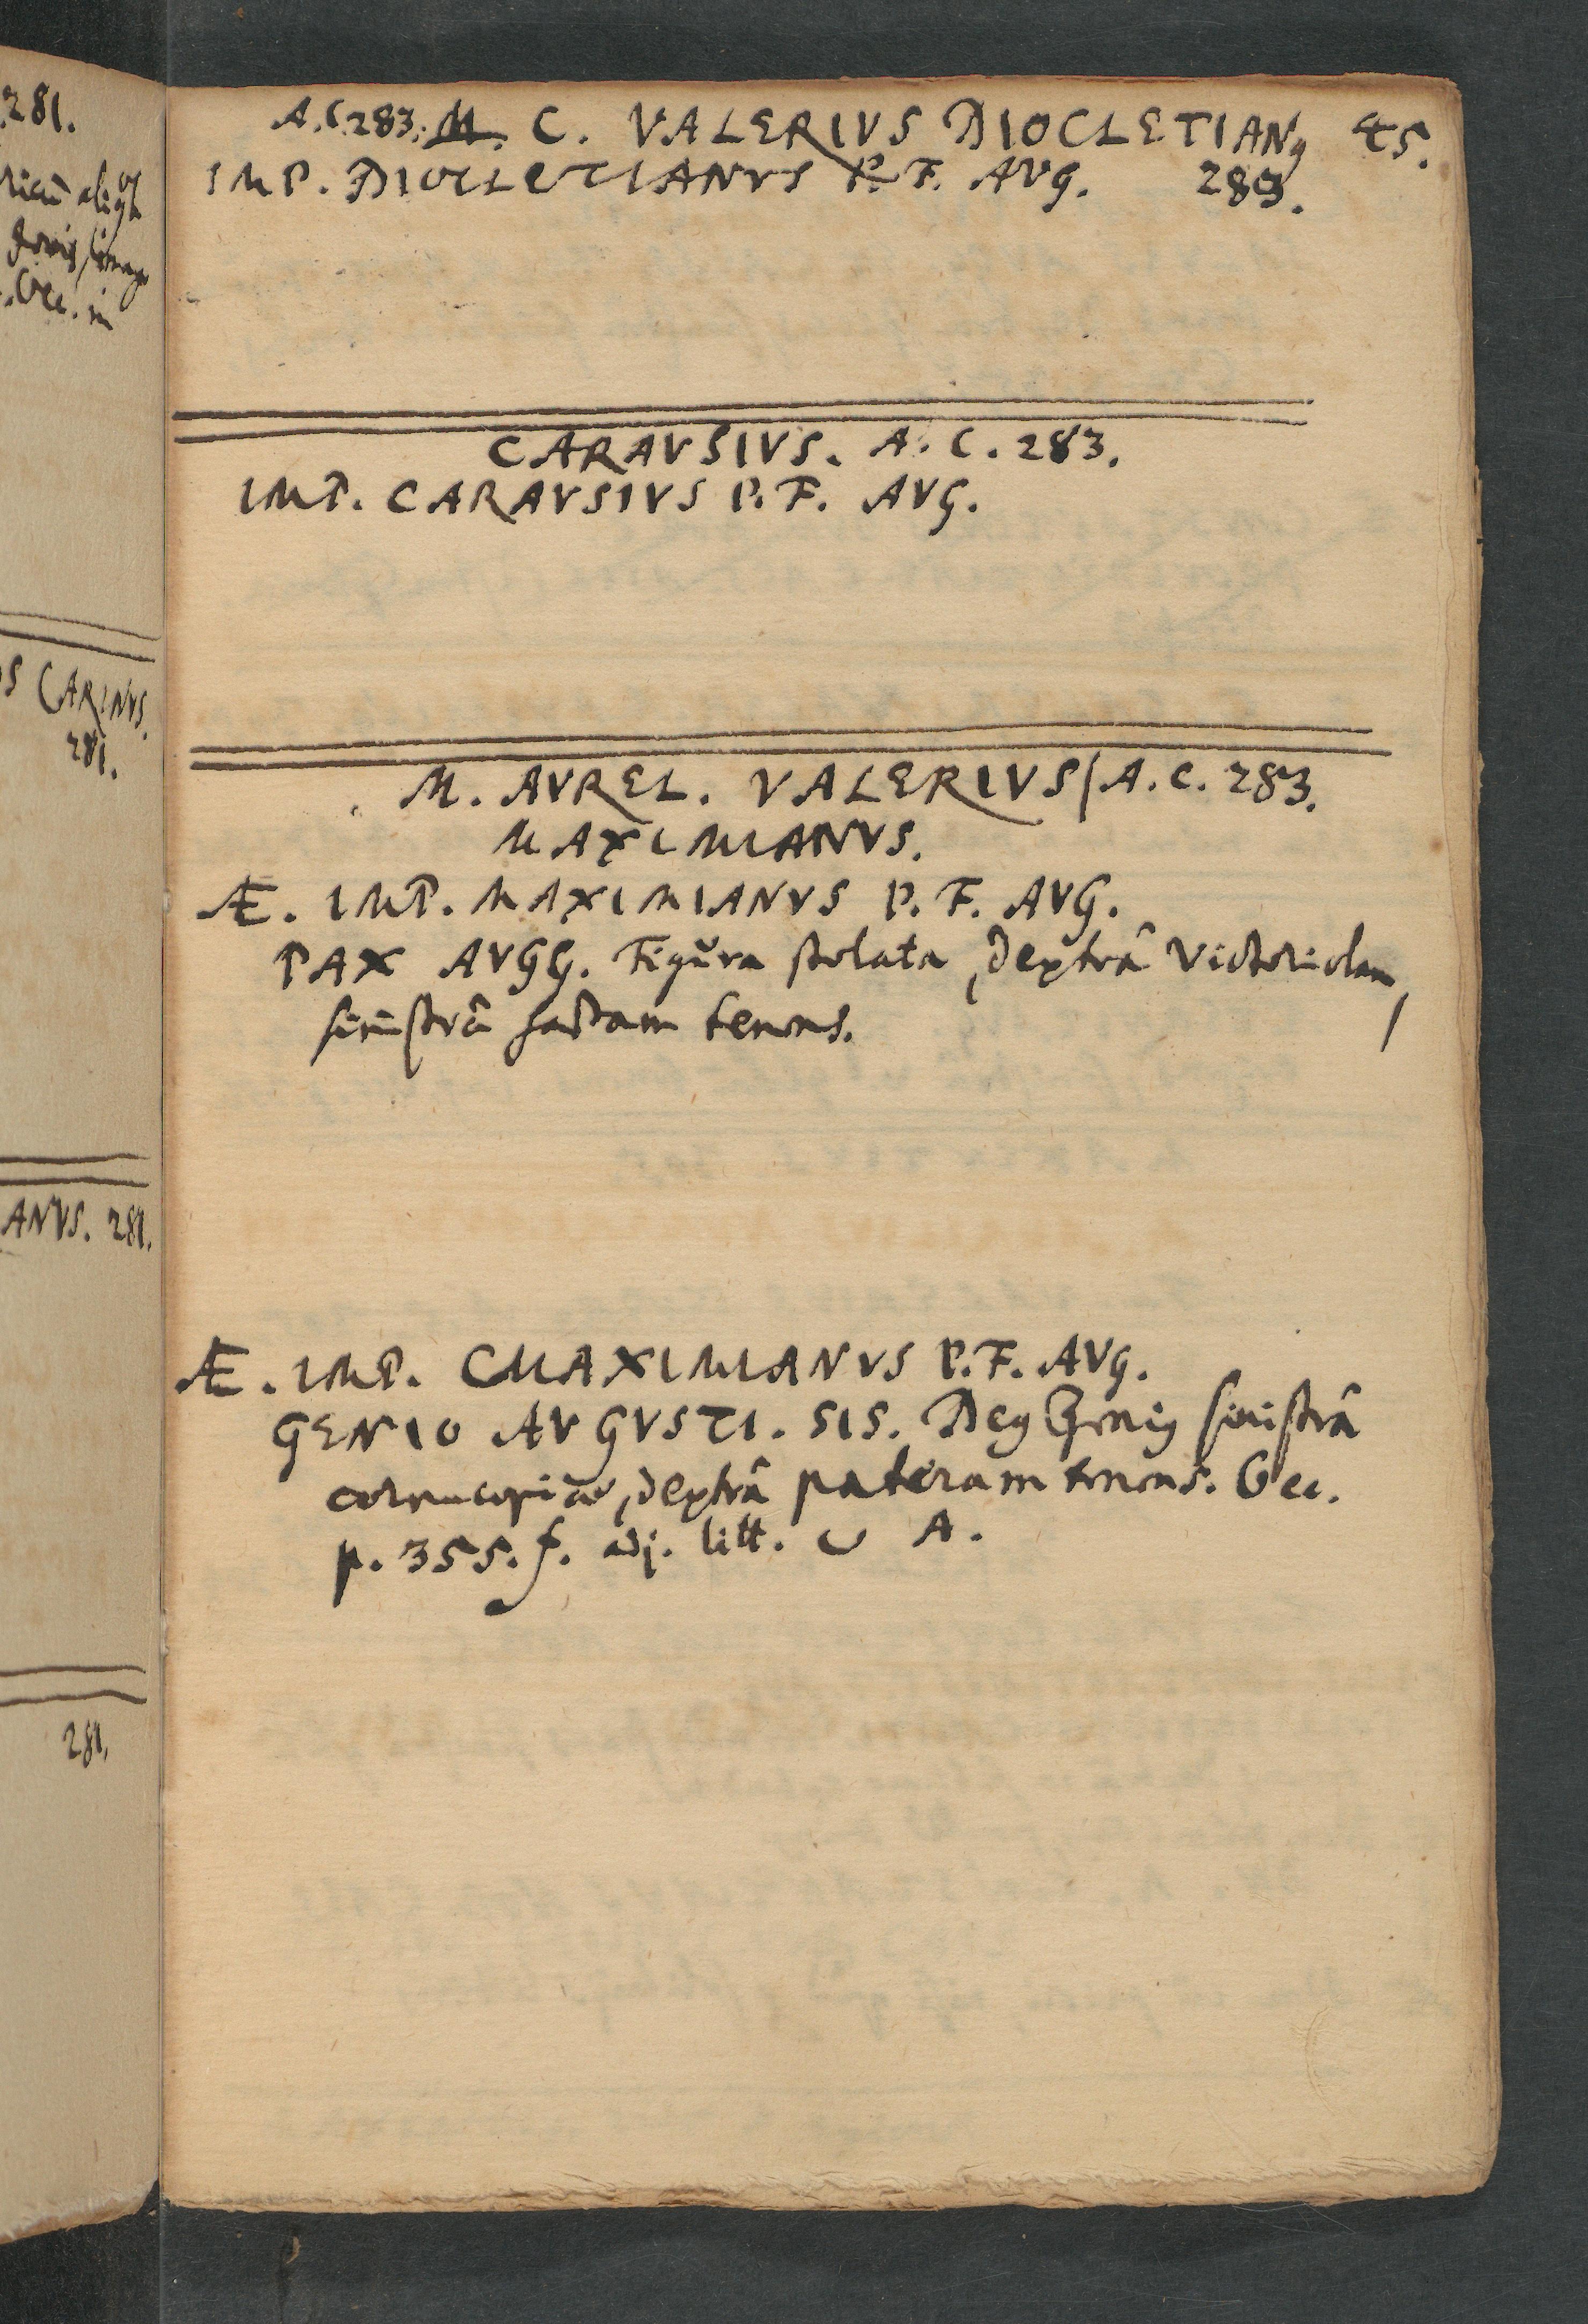 281.
S CARINVS.
281.
ANVS. 281.
281.
A.C. 283. M. C. VALERIVS DIOCLETIANꝰ 45.
IMP. DIOCLETIANVS P. F. AVG. 283.
CARAVSIVS. A. C. 283.
IMP. CARAVSIVS P. F. AVG.
M. AVREL. VALERIVS / A. C. 283.
MAXIMIANVS.
Æ. IMP. MAXIMIANVS P. F. AVG.
PAX AVGG. Figŭra stolata, dextrâ Victoriolam,
sinistrâ hastam tenens.
Æ. IMP. C MAXIMIANVS P. F. AVG.
GENIO AVGVSTI. SIS. Deꝰ Geniꝰ sinistrâ
cornucopiæ, dextrâ pateram tenens. Occ.
p. 355. f. adj. litt. ᴗ A.